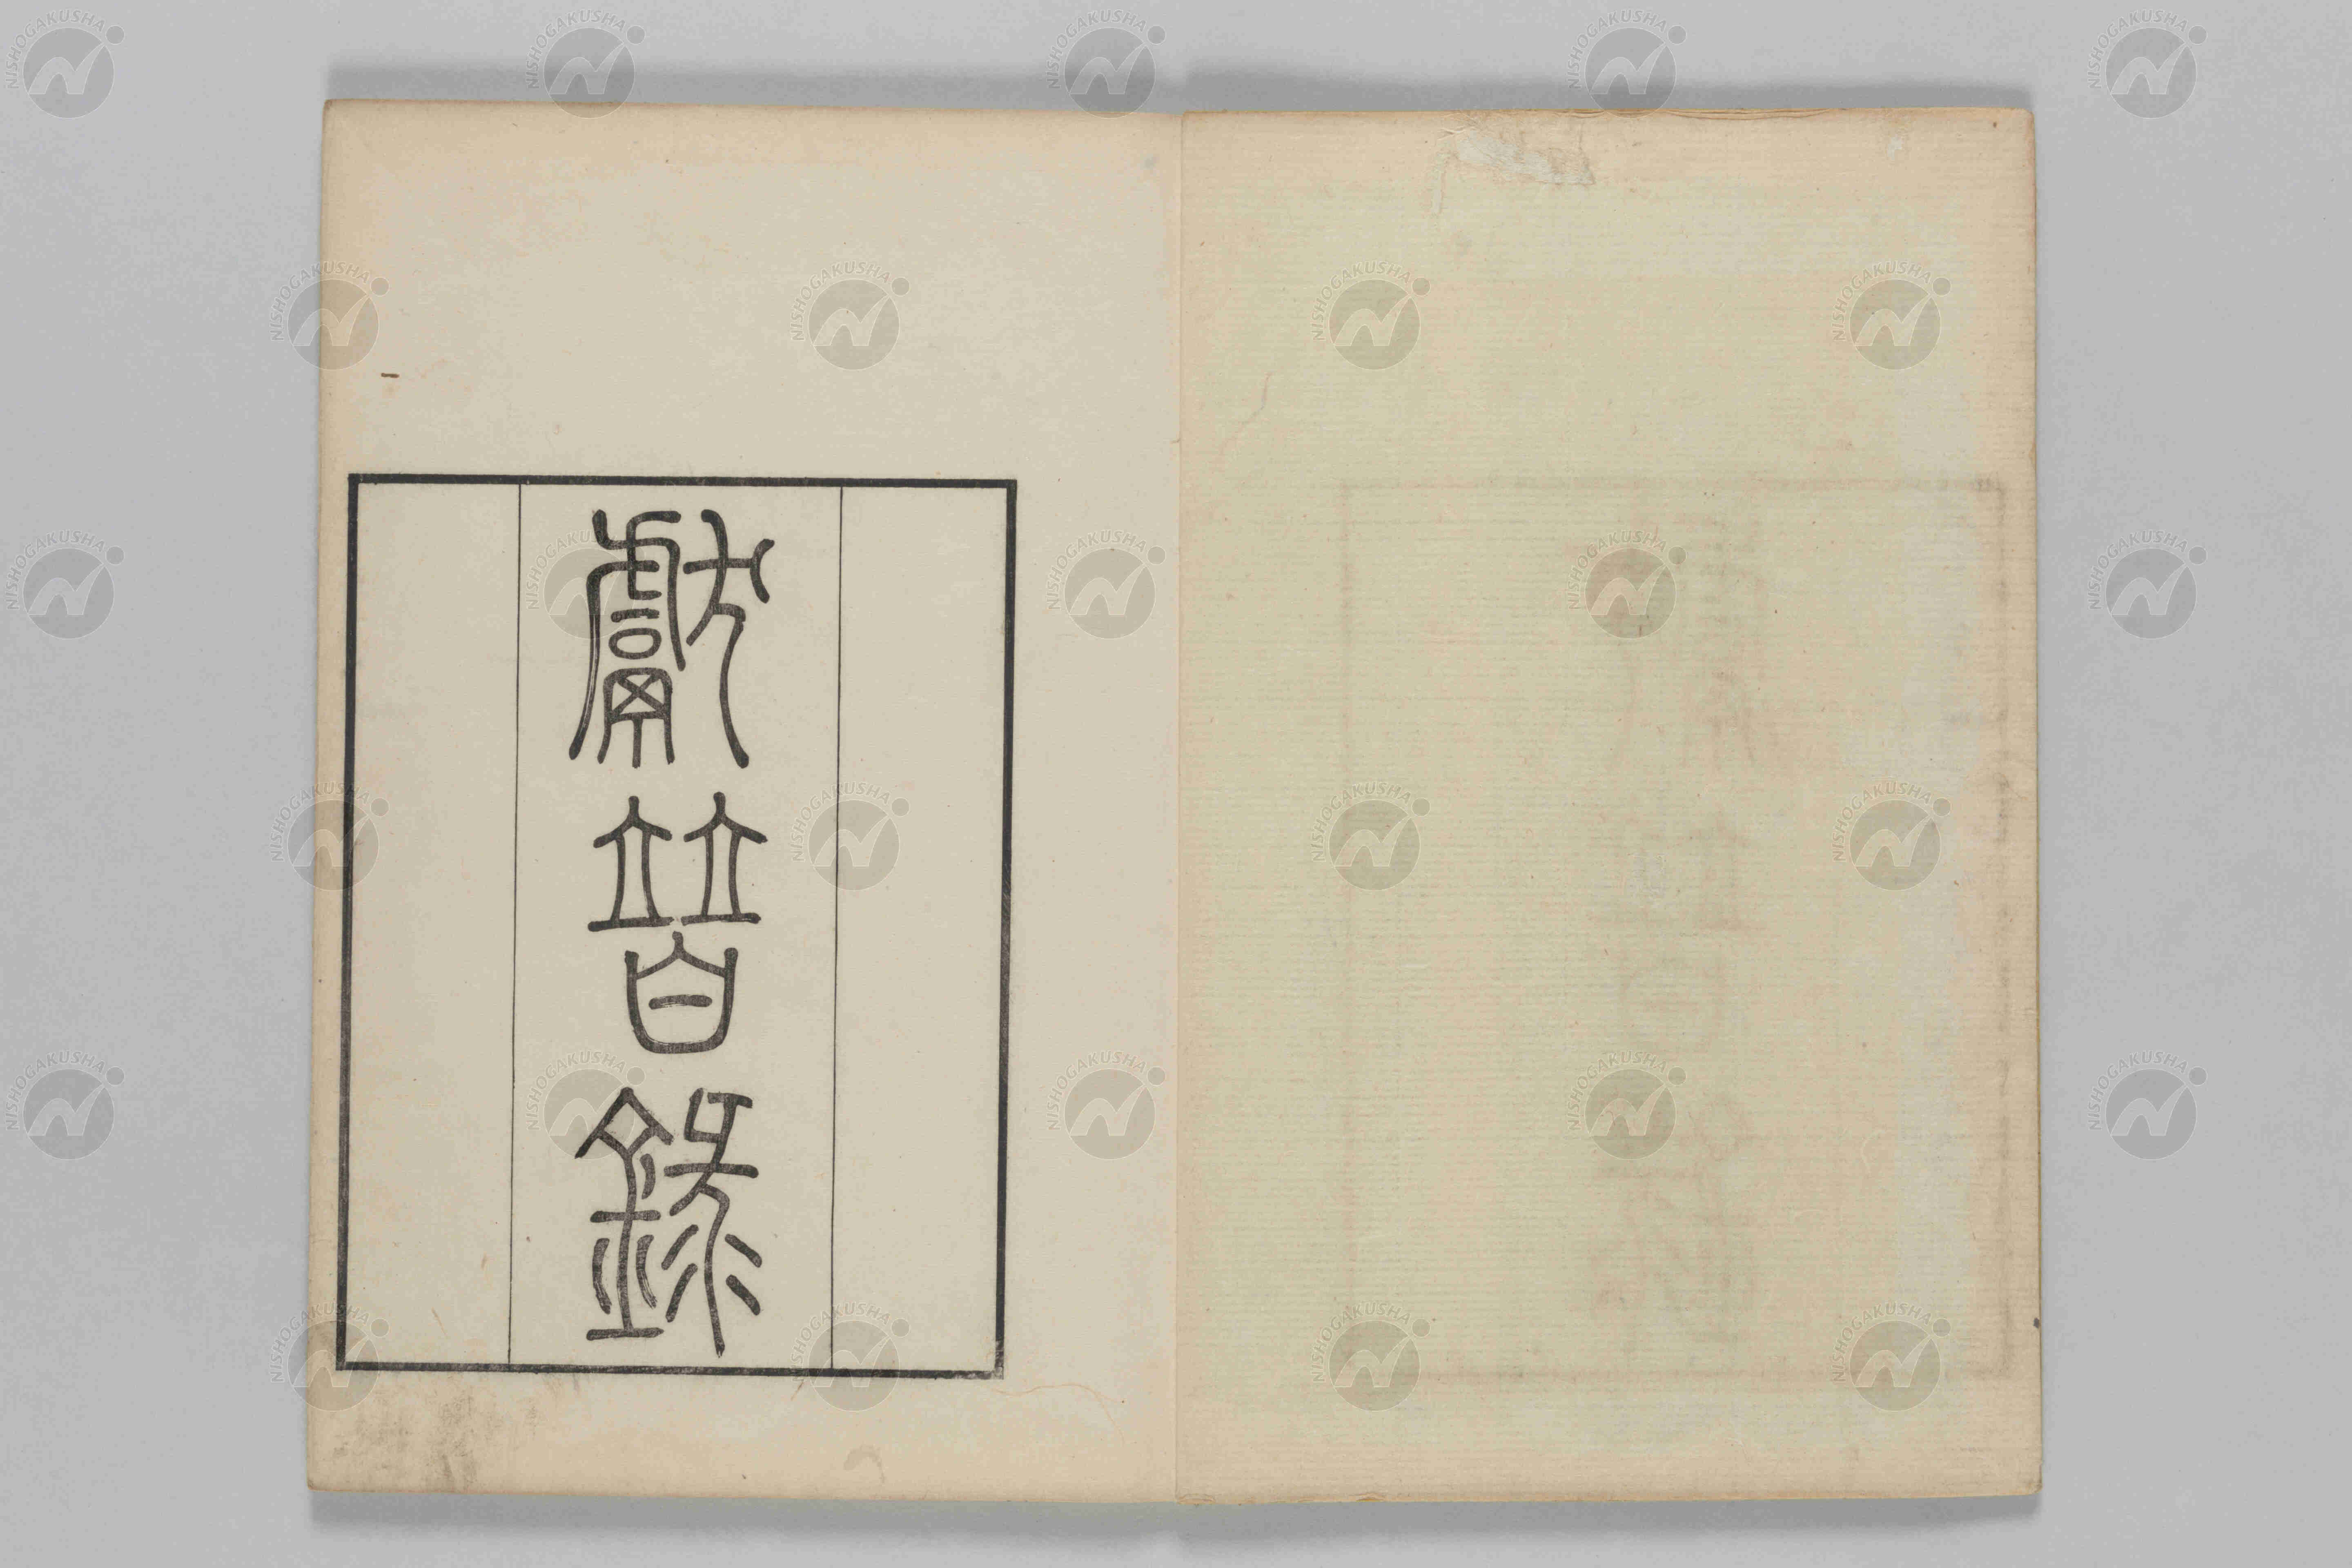 獻替錄
NISHOGAKUSHA